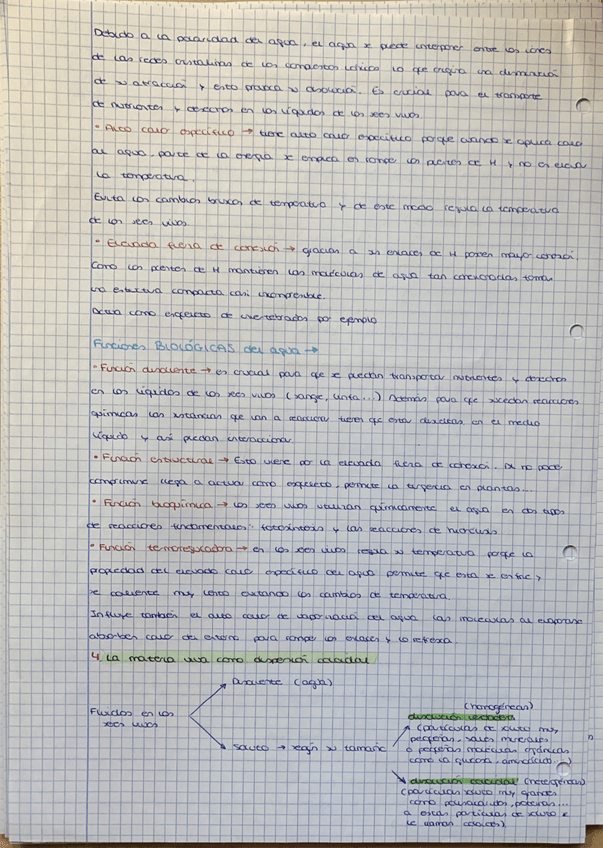 Debido a la polaridad del agua, el agua se puede interponer entre los iones
de las redes cristalinas de los compuestos iónicos lo que origina una disminución
de su atracción y esto provoca su disolución. Es crucial para el transporte
de nutrientes y desechos en los líquidos de los seres vivos.
• Alto calor específico → tiene alto calor específico porque cuando se aplica calor
al agua, parte de la energía se emplea en romper los puentes de H y no en elevar
la temperatura.
Evita los cambios bruscos de temperatura y de este modo regula la temperatura
de los seres vivos.
• Elevada fuerza de cohesión → gracias a sus enlaces de H poseen mayor cohesión.
Como los puentes de H mantienen las moléculas de agua tan cohesionadas forman
una estructura compacta casi incompresible.
Actúa como esqueleto de invertebrados por ejemplo
Funciones BIOLÓGICAS del agua →
• Función disolvente → es crucial para que se puedan transportar nutrientes y desechos
en los líquidos de los seres vivos (sangre, linfa...) Además para que sucedan reacciones
químicas las sustancias que van a reaccionar tienen que estar disueltas en el medio
líquido y así puedan interaccionar.
• Función estructural → Esto viene por la elevada fuerza de cohesión. Al no poder
comprimirse llega a actuar como esqueleto, permite la turgencia en plantas...
• Función bioquímica → los seres vivos utilizan químicamente el agua en dos tipos
de reacciones fundamentales: fotosíntesis y las reacciones de hidrólisis
• Función termorreguladora → en los seres vivos regula su temperatura porque la
propiedad del elevado calor específico del agua permite que esta se enfríe y
se caliente muy lento evitando los cambios de temperatura.
Influye también el alto calor de vaporización del agua. Las moléculas al evaporarse
absorben calor del entorno para romper los enlaces y lo refresca.
4. La materia viva como dispersión coloidal
Fluidos en los
seres vivos
Disolvente (agua)
Soluto → según su tamaño
(homogéneas)
disolución verdadera
(partículas de soluto muy
pequeñas, sales minerales
o pequeñas moléculas orgánicas
como la glucosa, aminoácido...)
disolución coloidal (heterogéneas)
(partículas soluto muy grandes
como polisacáridos, proteínas...
a estas partículas de soluto se
le llaman coloides).